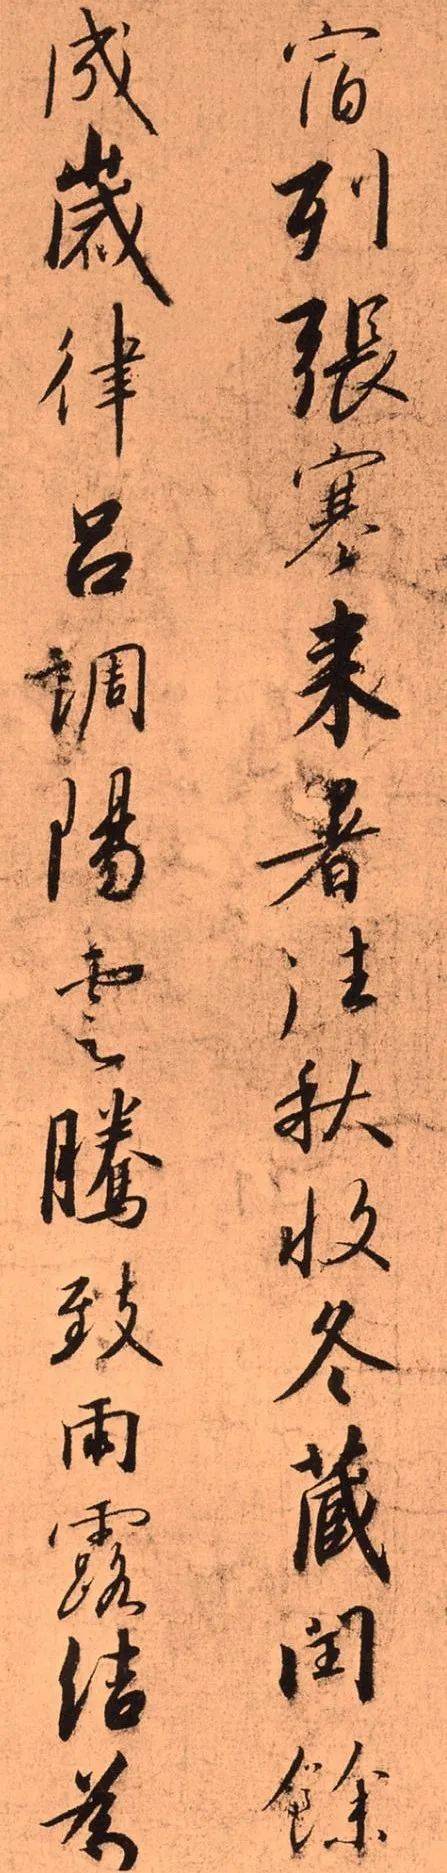 宿列張寒来暑往秋收冬蔵閏餘
成歲律呂調陽雲騰致雨露結為